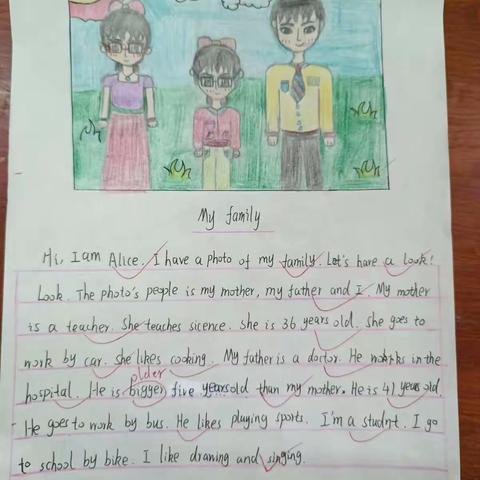 My family
Hi, I am Alice. I have a photo of my family. Let's have a look!
Look. The photo's people is my mother, my father and I. My mother
is a teacher. She teaches sicence. She is 36 years old. She goes to
work by car. She likes cooking. My father is a doctor. He works in the
older
hospital. He is bigger five years old than my mother. He is 41 years old.
He goes to work by bus. He likes playing sports. I'm a studnt. I go
to school by bike. I like drawing and singing.